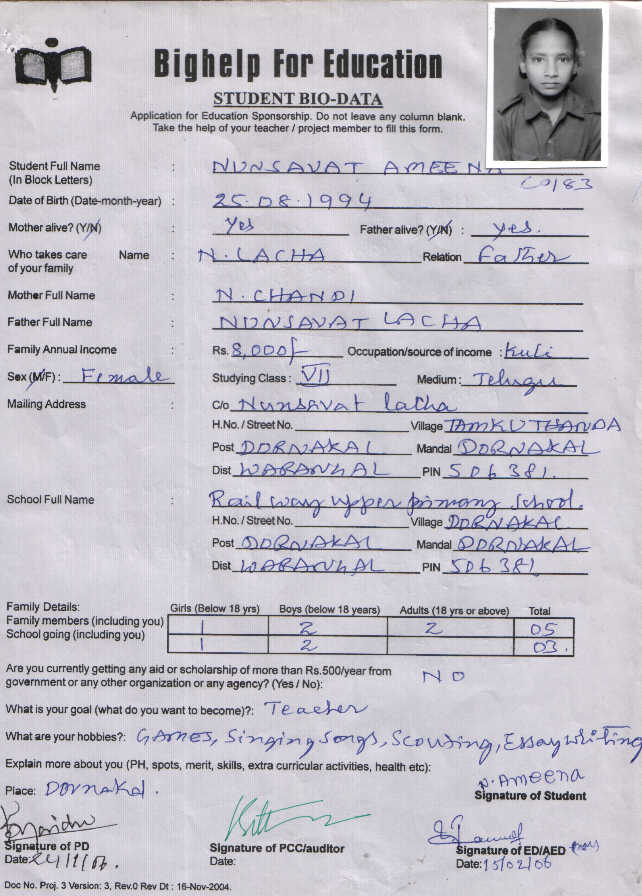 Bighelp For Education
STUDENT BIO-DATA
Application for Education Sponsorship. Do not leave any column blank.
Take the help of your teacher / project member to fill this form.
Student Full Name : NUNSAVAT AMEENA
(In Block Letters) CO183
Date of Birth (Date-month-year) : 25.08.1994
Mother alive? (Y/N) : Yes Father alive? (Y/N) : yes.
Who takes care Name : N. LACHA Relation Father
of your family
Mother Full Name : N. CHANDI
Father Full Name : NUNSAVAT LACHA
Family Annual Income : Rs. 8,000/- Occupation/source of income : Kuli
Sex (M/F) : Female Studying Class : VII Medium : Telugu
Mailing Address : C/o Nunsavat lacha
H.No. / Street No. Village TAMKUTHANDA
Post DORNAKAL Mandal DORNAKAL
Dist WARANGAL PIN 506381.
School Full Name : Railway upper primary school.
H.No. / Street No. Village DORNAKAL
Post DORNAKAL Mandal DORNAKAL
Dist WARANGAL PIN 506381
Family Details: Girls (Below 18 yrs) Boys (below 18 years) Adults (18 yrs or above) Total
Family members (including you) 1 2 2 05
School going (including you) 1 2 03.
Are you currently getting any aid or scholarship of more than Rs.500/year from
government or any other organization or any agency? (Yes / No): NO
What is your goal (what do you want to become)?: Teacher
What are your hobbies?: GAMES, Singing songs, Scouting, Essay writing
Explain more about you (PH, spots, merit, skills, extra curricular activities, health etc):
Place: Dornakal. N. AMEENA
Signature of Student
Signature of PD Signature of PCC/auditor Signature of ED/AED
Date: Date: Date: 15/02/06
Doc No. Proj. 3 Version: 3, Rev.0 Rev Dt : 16-Nov-2004.